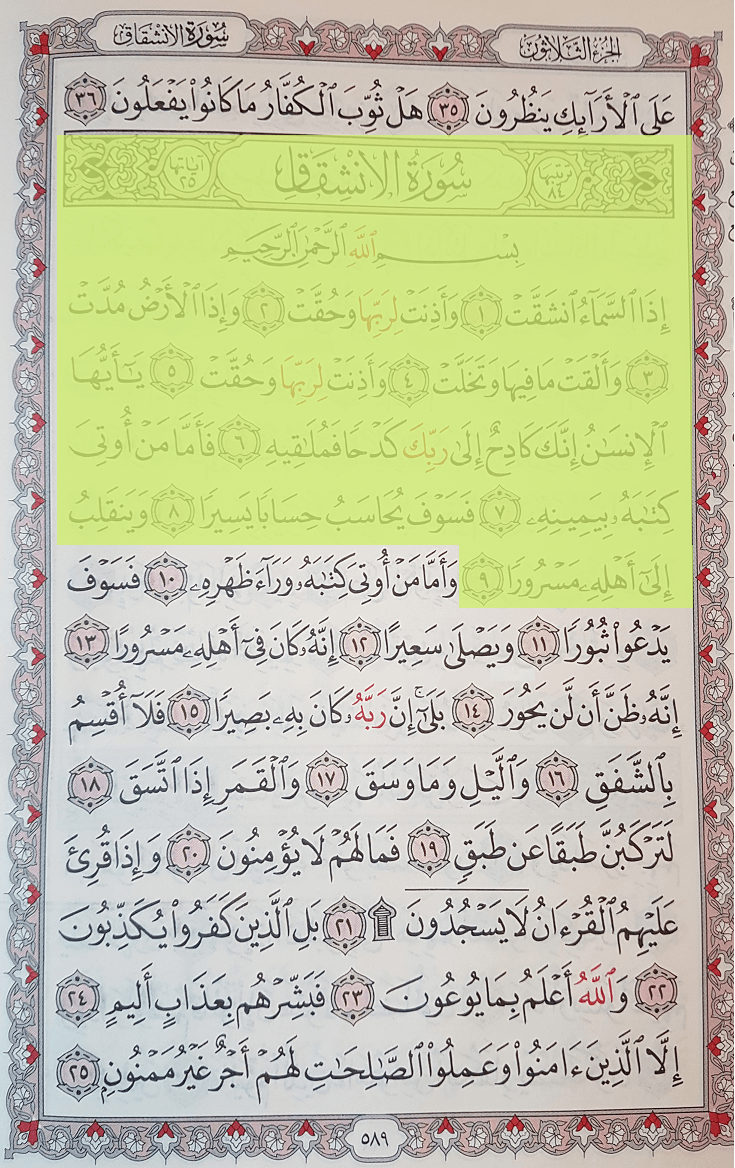 الجزء الثلاثون
سورة الانشقاق
عَلَى ٱلْأَرَآئِكِ يَنظُرُونَ ٣٥ هَلْ ثُوِّبَ ٱلْكُفَّارُ مَا كَانُوا۟ يَفْعَلُونَ ٣٦
ترتيبها ٨٤ سُورَةُ الِانْشِقَاقِ آياتها ٢٥
بِسْمِ ٱللَّهِ ٱلرَّحْمَٰنِ ٱلرَّحِيمِ
إِذَا ٱلسَّمَآءُ ٱنشَقَّتْ ١ وَأَذِنَتْ لِرَبِّهَا وَحُقَّتْ ٢ وَإِذَا ٱلْأَرْضُ مُدَّتْ
٣ وَأَلْقَتْ مَا فِيهَا وَتَخَلَّتْ ٤ وَأَذِنَتْ لِرَبِّهَا وَحُقَّتْ ٥ يَٰٓأَيُّهَا
ٱلْإِنسَٰنُ إِنَّكَ كَادِحٌ إِلَىٰ رَبِّكَ كَدْحًا فَمُلَٰقِيهِ ٦ فَأَمَّا مَنْ أُوتِىَ
كِتَٰبَهُۥ بِيَمِينِهِۦ ٧ فَسَوْفَ يُحَاسَبُ حِسَابًا يَسِيرًا ٨ وَيَنقَلِبُ
إِلَىٰٓ أَهْلِهِۦ مَسْرُورًا ٩ وَأَمَّا مَنْ أُوتِىَ كِتَٰبَهُۥ وَرَآءَ ظَهْرِهِۦ ١٠ فَسَوْفَ
يَدْعُوا۟ ثُبُورًا ١١ وَيَصْلَىٰ سَعِيرًا ١٢ إِنَّهُۥ كَانَ فِىٓ أَهْلِهِۦ مَسْرُورًا ١٣
إِنَّهُۥ ظَنَّ أَن لَّن يَحُورَ ١٤ بَلَىٰٓ ۚ إِنَّ رَبَّهُۥ كَانَ بِهِۦ بَصِيرًا ١٥ فَلَآ أُقْسِمُ
بِٱلشَّفَقِ ١٦ وَٱلَّيْلِ وَمَا وَسَقَ ١٧ وَٱلْقَمَرِ إِذَا ٱتَّسَقَ ١٨
لَتَرْكَبُنَّ طَبَقًا عَن طَبَقٍ ١٩ فَمَا لَهُمْ لَا يُؤْمِنُونَ ٢٠ وَإِذَا قُرِئَ
عَلَيْهِمُ ٱلْقُرْءَانُ لَا يَسْجُدُونَ ۩ ٢١ بَلِ ٱلَّذِينَ كَفَرُوا۟ يُكَذِّبُونَ
٢٢ وَٱللَّهُ أَعْلَمُ بِمَا يُوعُونَ ٢٣ فَبَشِّرْهُم بِعَذَابٍ أَلِيمٍ ٢٤
إِلَّا ٱلَّذِينَ ءَامَنُوا۟ وَعَمِلُوا۟ ٱلصَّٰلِحَٰتِ لَهُمْ أَجْرٌ غَيْرُ مَمْنُونٍۭ ٢٥
٥٨٩